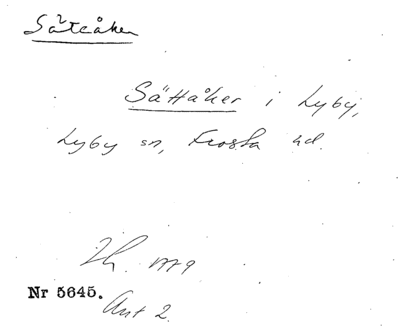 Sätåker
Sättåker i Lyby,
Lyby sn, Frosta hd.
Lh. 1779
Nr 5645.
Akt 2.